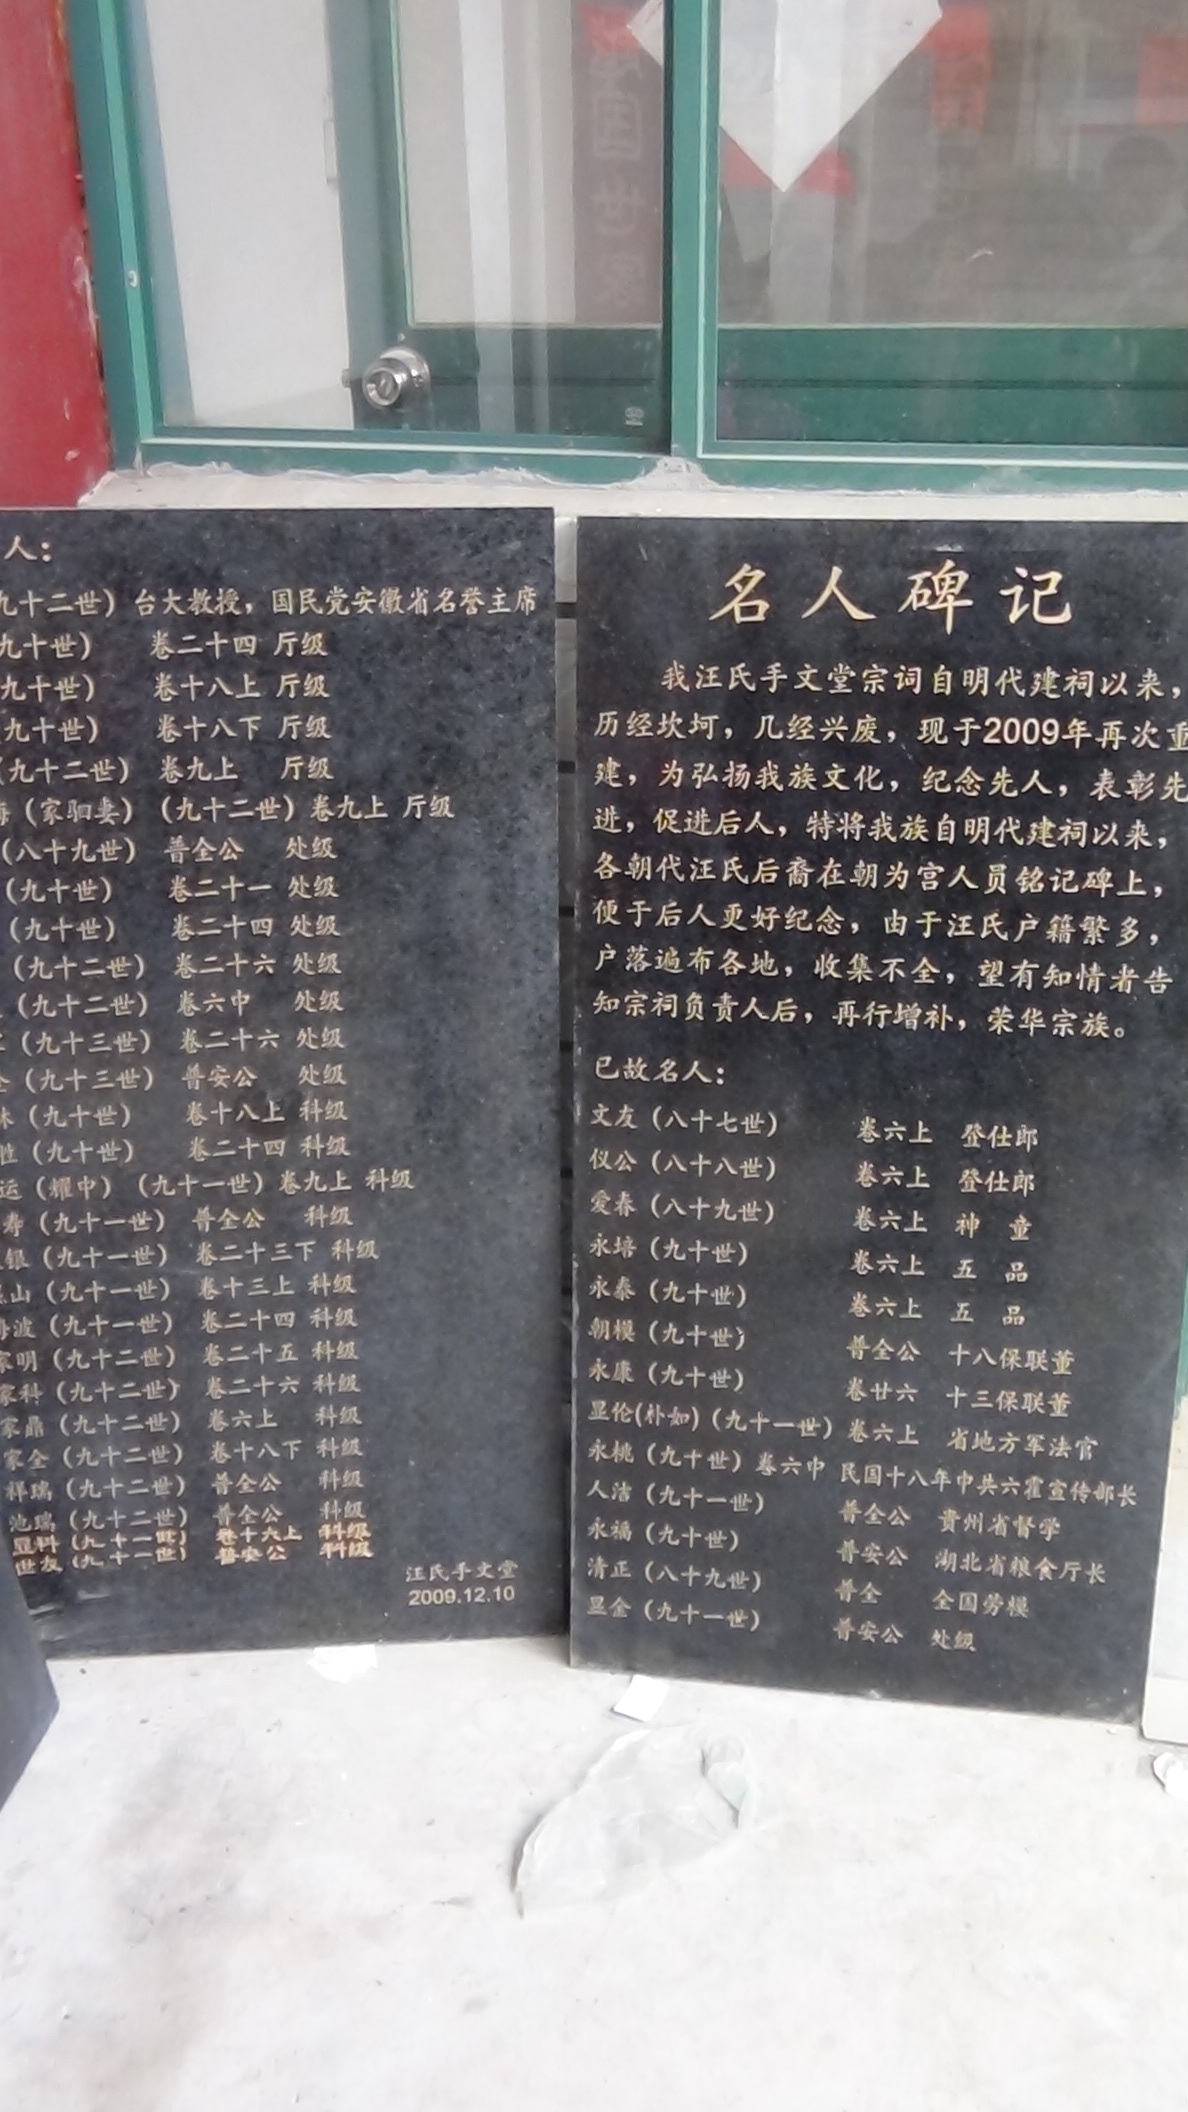 名人碑记
我汪氏手文堂宗词自明代建祠以来，
历经坎坷，几经兴废，现于2009年再次重
建，为弘扬我族文化，纪念先人，表彰先
进，促进后人，特将我族自明代建祠以来，
各朝代汪氏后裔在朝为宫人员铭记碑上，
便于后人更好纪念，由于汪氏户籍繁多，
户落遍布各地，收集不全，望有知情者告
知宗祠负责人后，再行增补，荣华宗族。
已故名人：
文友（八十七世） 卷六上 登仕郎
仪公（八十八世） 卷六上 登仕郎
爱春（八十九世） 卷六上 神童
永培（九十世） 卷六上 五品
永泰（九十世） 卷六上 五品
朝模（九十世） 普全公 十八保联董
永康（九十世） 卷廿六 十三保联董
显伦(朴如)（九十一世） 卷六上 省地方军法官
永桃（九十世）卷六中 民国十八年中共六霍宣传部长
人洁（九十一世） 普全公 贵州省督学
永福（九十世） 普安公 湖北省粮食厅长
清正（八十九世） 普全 全国劳模
显金（九十一世） 普安公 处级
人：
九十二世）台大教授，国民党安徽省名誉主席
九十世） 卷二十四 厅级
九十世） 卷十八上 厅级
九十世） 卷十八下 厅级
（九十二世） 卷九上 厅级
海（家驷妻）（九十二世）卷九上 厅级
（八十九世） 普全公 处级
（九十世） 卷二十一 处级
（九十世） 卷二十四 处级
（九十二世） 卷二十六 处级
（九十二世） 卷六中 处级
（九十三世） 卷二十六 处级
（九十三世） 普安公 处级
（九十世） 卷十八上 科级
（九十世） 卷二十四 科级
运（耀中）（九十一世）卷九上 科级
寿（九十一世） 普全公 科级
银（九十一世） 卷二十三下 科级
山（九十一世） 卷十三上 科级
波（九十一世） 卷二十四 科级
家明（九十二世） 卷二十五 科级
家科（九十二世） 卷二十六 科级
家鼎（九十二世） 卷六上 科级
家全（九十二世） 卷十八下 科级
祥瑞（九十二世） 普全公 科级
池瑞（九十二世） 普全公 科级
显科（九十一世） 卷十六上 科级
世友（九十一世） 普安公 科级
汪氏手文堂
2009.12.10